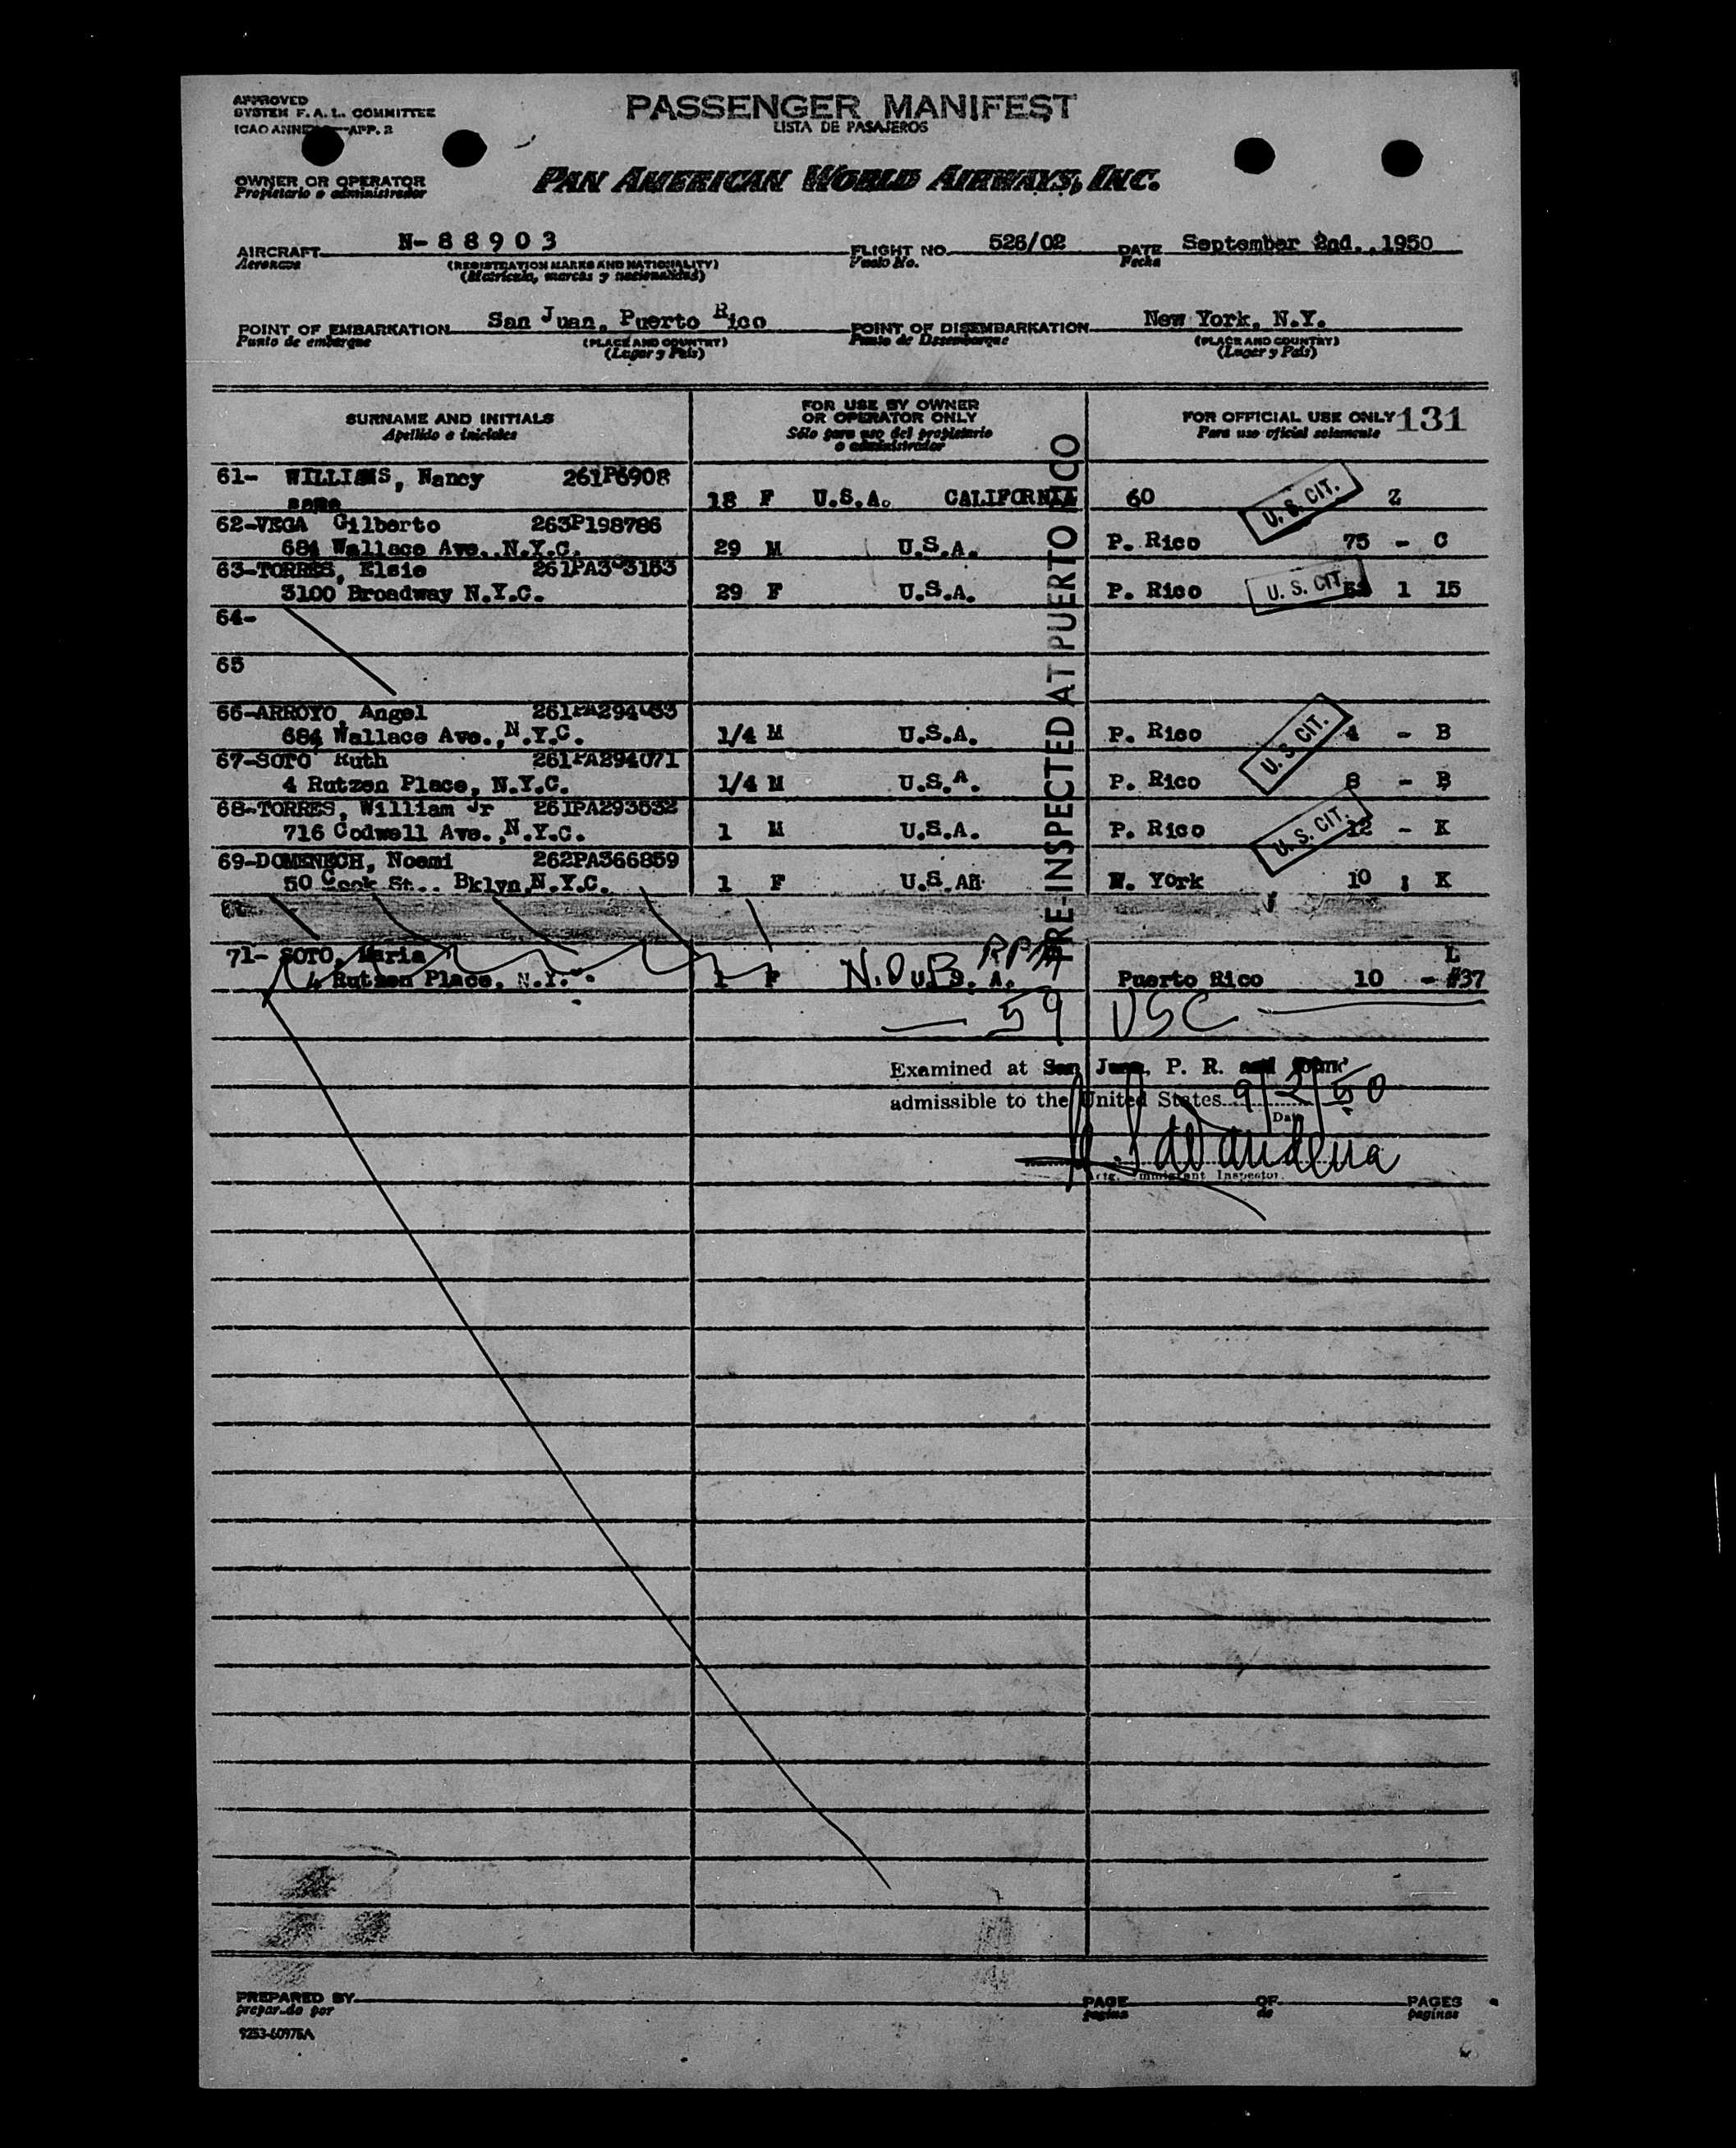 APPROVED
SYSTEM F.A.L. COMMITTEE
ICAO ANNEX APP. 2
PASSENGER MANIFEST
LISTA DE PASAJEROS
OWNER OR OPERATOR
Propietario o administrador
PAN AMERICAN WORLD AIRWAYS, INC.
AIRCRAFT N-88903 FLIGHT NO. 526/02 DATE September 2nd., 1950
Aeronave (REGISTRATION MARKS AND NATIONALITY) Vuelo No. Fecha
(Matricula, marcas y nacionalidad)
POINT OF EMBARKATION San Juan, Puerto Rico POINT OF DISEMBARKATION New York, N.Y.
Punto de embarque (PLACE AND COUNTRY) Punto de Desembarque (PLACE AND COUNTRY)
(Lugar y País) (Lugar y País)
SURNAME AND INITIALS FOR USE BY OWNER OR OPERATOR ONLY FOR OFFICIAL USE ONLY 131
Apellido e iniciales Sólo para uso del propietario o administrador Para uso oficial solamente
PRE-INSPECTED AT PUERTO RICO
61- WILLIAMS, Nancy 261P6908
same 18 F U.S.A. CALIFORNIA 60 U. S. CIT. Z
62-VEGA Gilberto 263P198786
684 Wallace Ave., N.Y.C. 29 M U.S.A. P. Rico 75 - C
63-TORRES, Elsie
3100 Broadway N.Y.C. 29 F U.S.A. P. Rico U. S. CIT. 1 15
64-
65
66-ARROYO, Angel
684 Wallace Ave., N.Y.C. 1/4 M U.S.A. P. Rico U. S. CIT. 4 - B
67-SOTO Ruth 261PA294071
4 Rutzen Place, N.Y.C. 1/4 M U.S.A. P. Rico 8 - B
68-TORRES, William Jr 261PA293532
716 Codwell Ave., N.Y.C. 1 M U.S.A. P. Rico U. S. CIT. 12 - K
69-DOMENECH, Noemi 262PA366859
50 Cook St.. Bklyn N.Y.C. 1 F U.S. N. York 10 K
71- SOTO, Maria L
4 Rutzen Place, N.Y. 1 F N.O.B. U.S.A. Puerto Rico 10 - #37
59 USC
Examined at San Juan, P. R. and found
admissible to the United States 9/2/50
Date
Immigrant Inspector.
PREPARED BY PAGE OF PAGES
preparado por página de páginas
9253-60975A